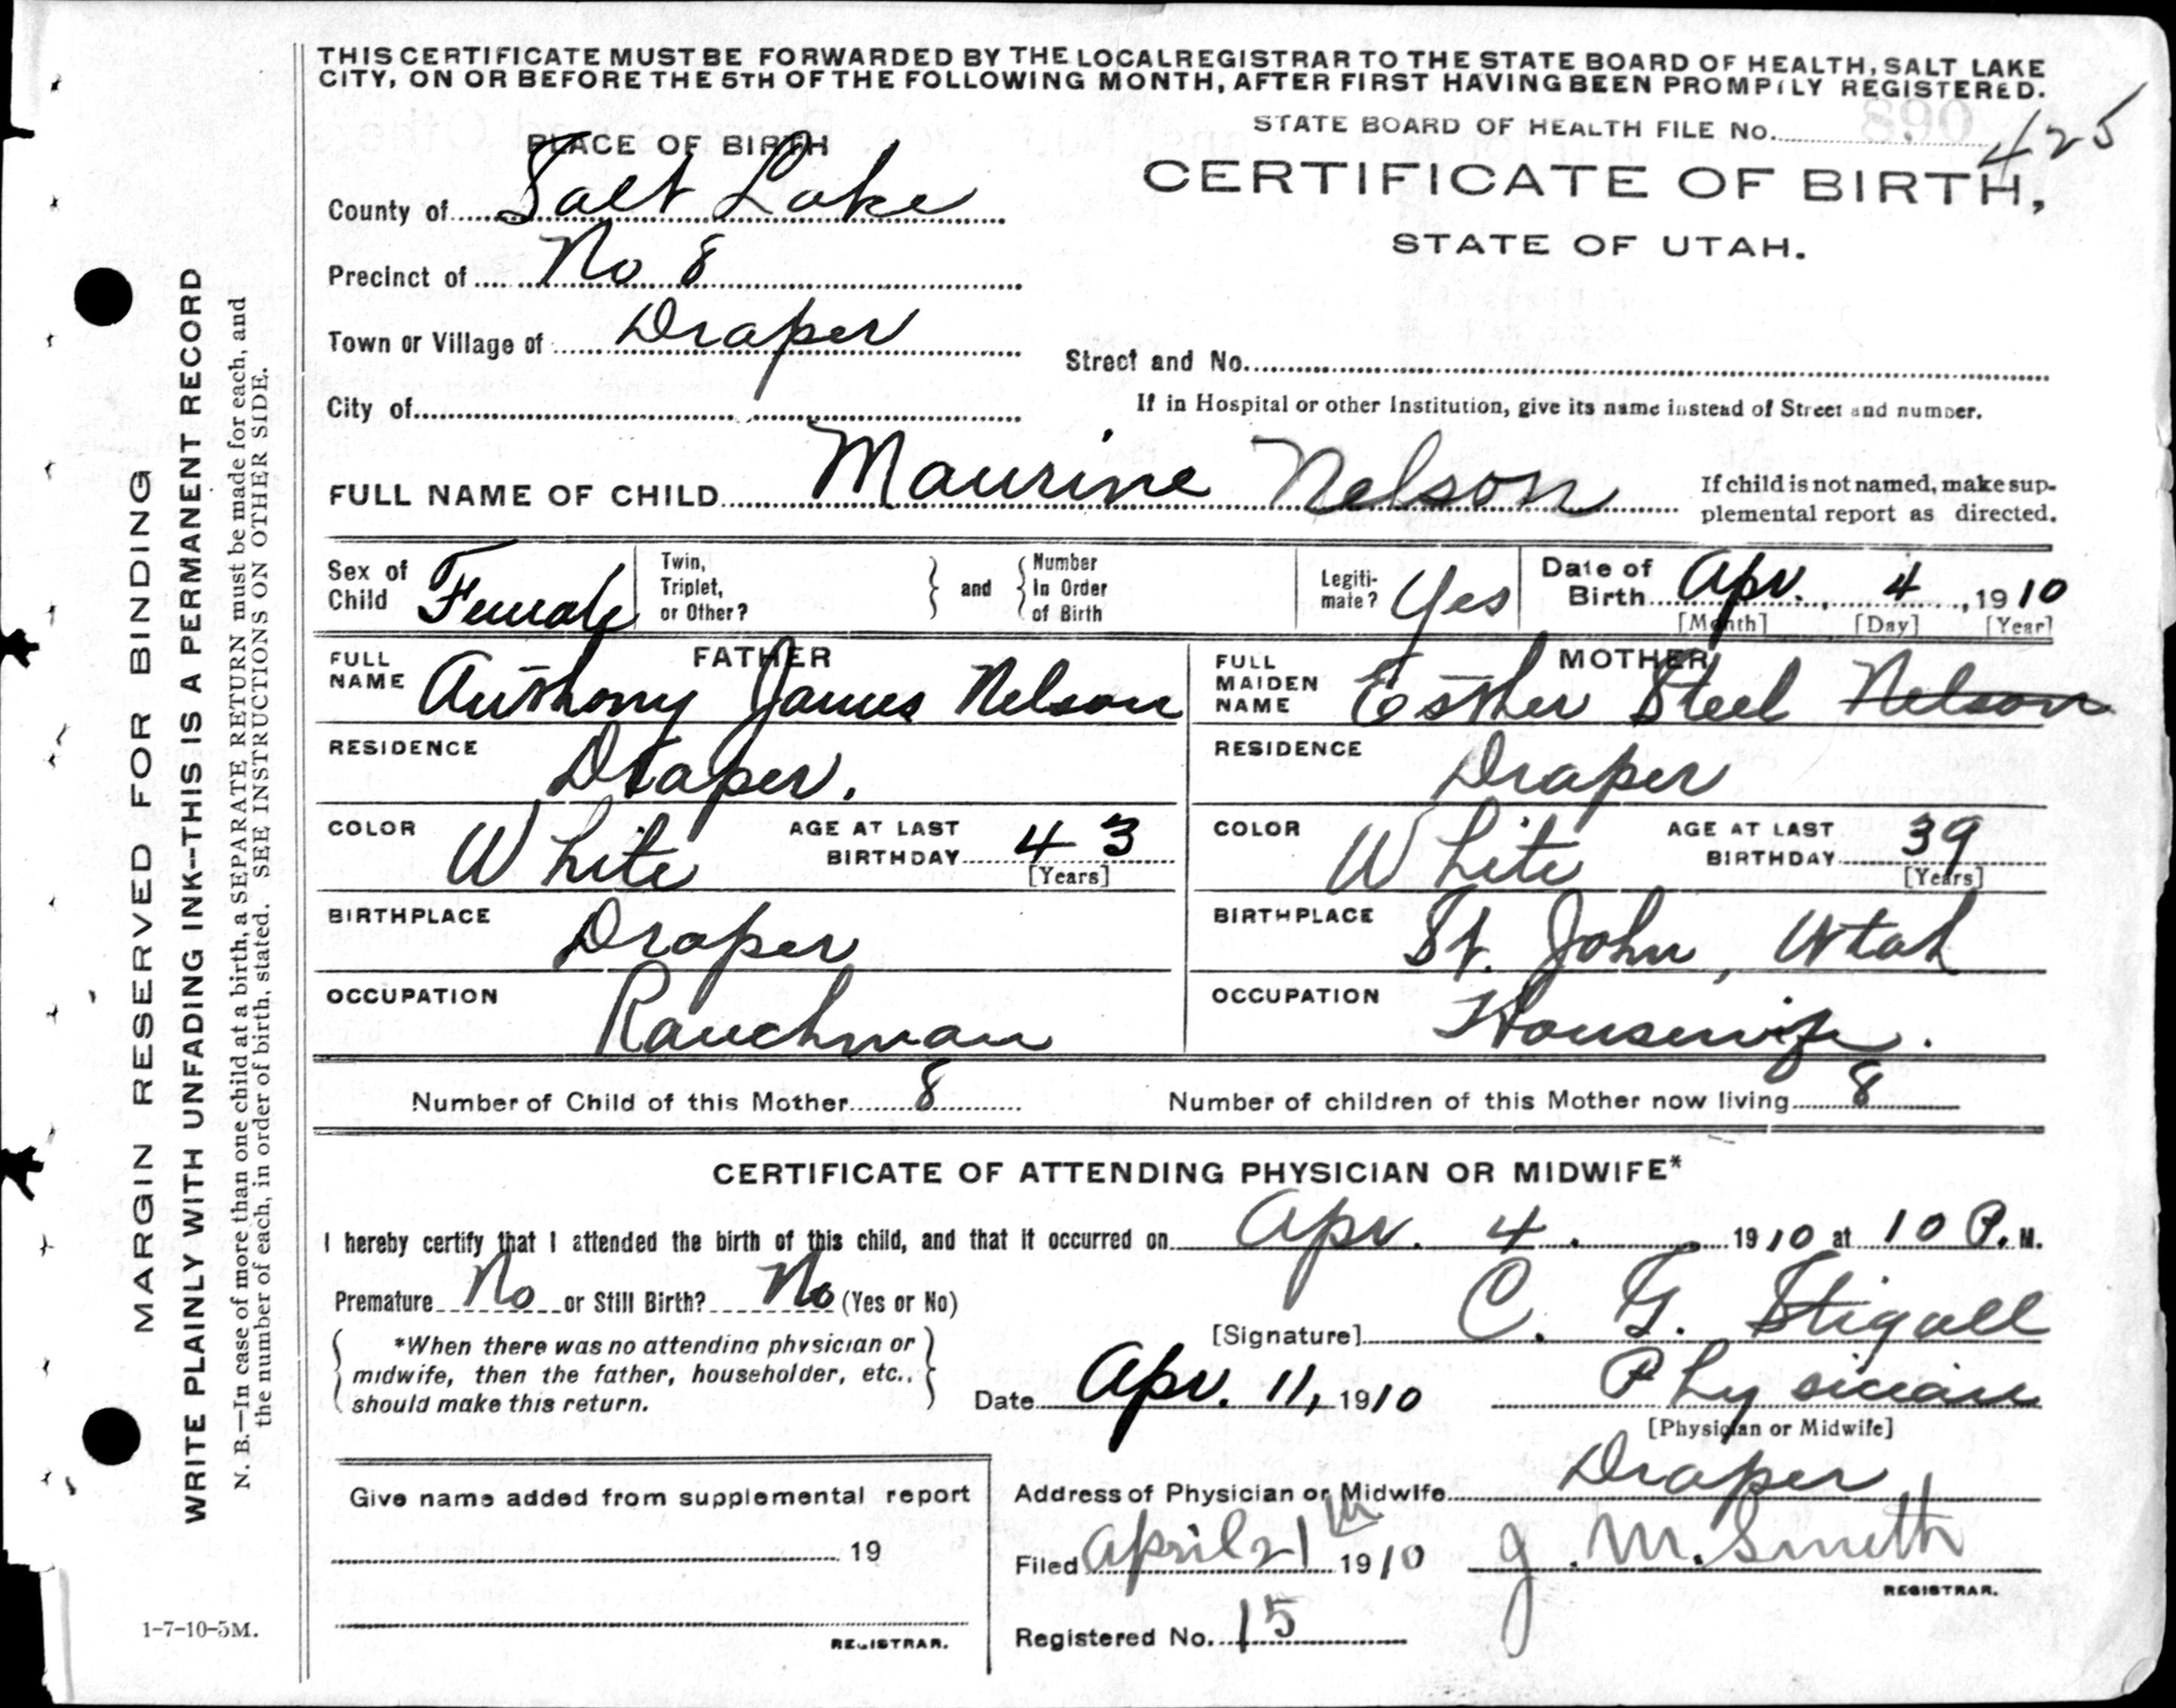 THIS CERTIFICATE MUST BE FORWARDED BY THE LOCAL REGISTRAR TO THE STATE BOARD OF HEALTH, SALT LAKE
CITY, ON OR BEFORE THE 5TH OF THE FOLLOWING MONTH, AFTER FIRST HAVING BEEN PROMPTLY REGISTERED.
STATE BOARD OF HEALTH FILE No. 425
PLACE OF BIRTH
CERTIFICATE OF BIRTH,
STATE OF UTAH.
County of Salt Lake
Precinct of No 8
Town or Village of Draper
Street and No.
City of
If in Hospital or other Institution, give its name instead of Street and number.
FULL NAME OF CHILD Maurine Nelson
If child is not named, make sup-
plemental report as directed.
Sex of Child Female
Twin, Triplet, or Other? and Number In Order of Birth
Legiti-mate? Yes
Date of Birth Apr. 4, 1910
[Month] [Day] [Year]
FATHER
FULL NAME Anthony James Nelson
RESIDENCE Draper.
COLOR White AGE AT LAST BIRTHDAY 43
[Years]
BIRTHPLACE Draper
OCCUPATION Ranchman
MOTHER
FULL MAIDEN NAME Esther Steel Nelson
RESIDENCE Draper
COLOR White AGE AT LAST BIRTHDAY 39
[Years]
BIRTHPLACE St. John, Utah
OCCUPATION Housewife.
Number of Child of this Mother 8 Number of children of this Mother now living 8
CERTIFICATE OF ATTENDING PHYSICIAN OR MIDWIFE*
I hereby certify that I attended the birth of this child, and that it occurred on Apr. 4. 1910 at 10 P. M.
Premature No or Still Birth? No (Yes or No)
*When there was no attending physician or
midwife, then the father, householder, etc.,
should make this return.
[Signature] C. G. Stigall
Date Apr. 11, 1910 Physician
[Physician or Midwife]
Give name added from supplemental report
19
REGISTRAR.
Address of Physician or Midwife Draper
Filed April 21th 1910 J. M. Smith
REGISTRAR.
Registered No. 15
MARGIN RESERVED FOR BINDING
WRITE PLAINLY WITH UNFADING INK--THIS IS A PERMANENT RECORD
N. B.—In case of more than one child at a birth, a SEPARATE RETURN must be made for each, and
the number of each, in order of birth, stated. SEE INSTRUCTIONS ON OTHER SIDE.
1-7-10-5M.